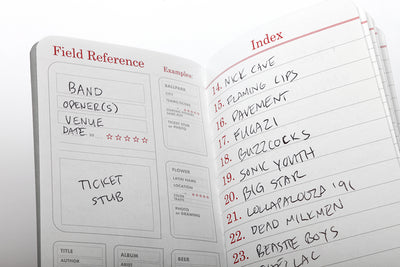 Field Reference
BAND
OPENER(S)
VENUE
DATE
TICKET
STUB
TITLE
AUTHOR
ALBUM
ARTIST
BEER
Examples:
BALLPARK
CITY
FLOWER
LATIN NAME
LOCATION
PHOTO
or DRAWING
Index
14. NICK CAVE
15. FLAMING LIPS
16. PAVEMENT
17. FUGAZI
18. BUZZCOCKS
19. SONIC YOUTH
20. BIG STAR
21. LOLLAPALOOZA '91
22. DEAD MILKMEN
23. BEASTIE BOYS